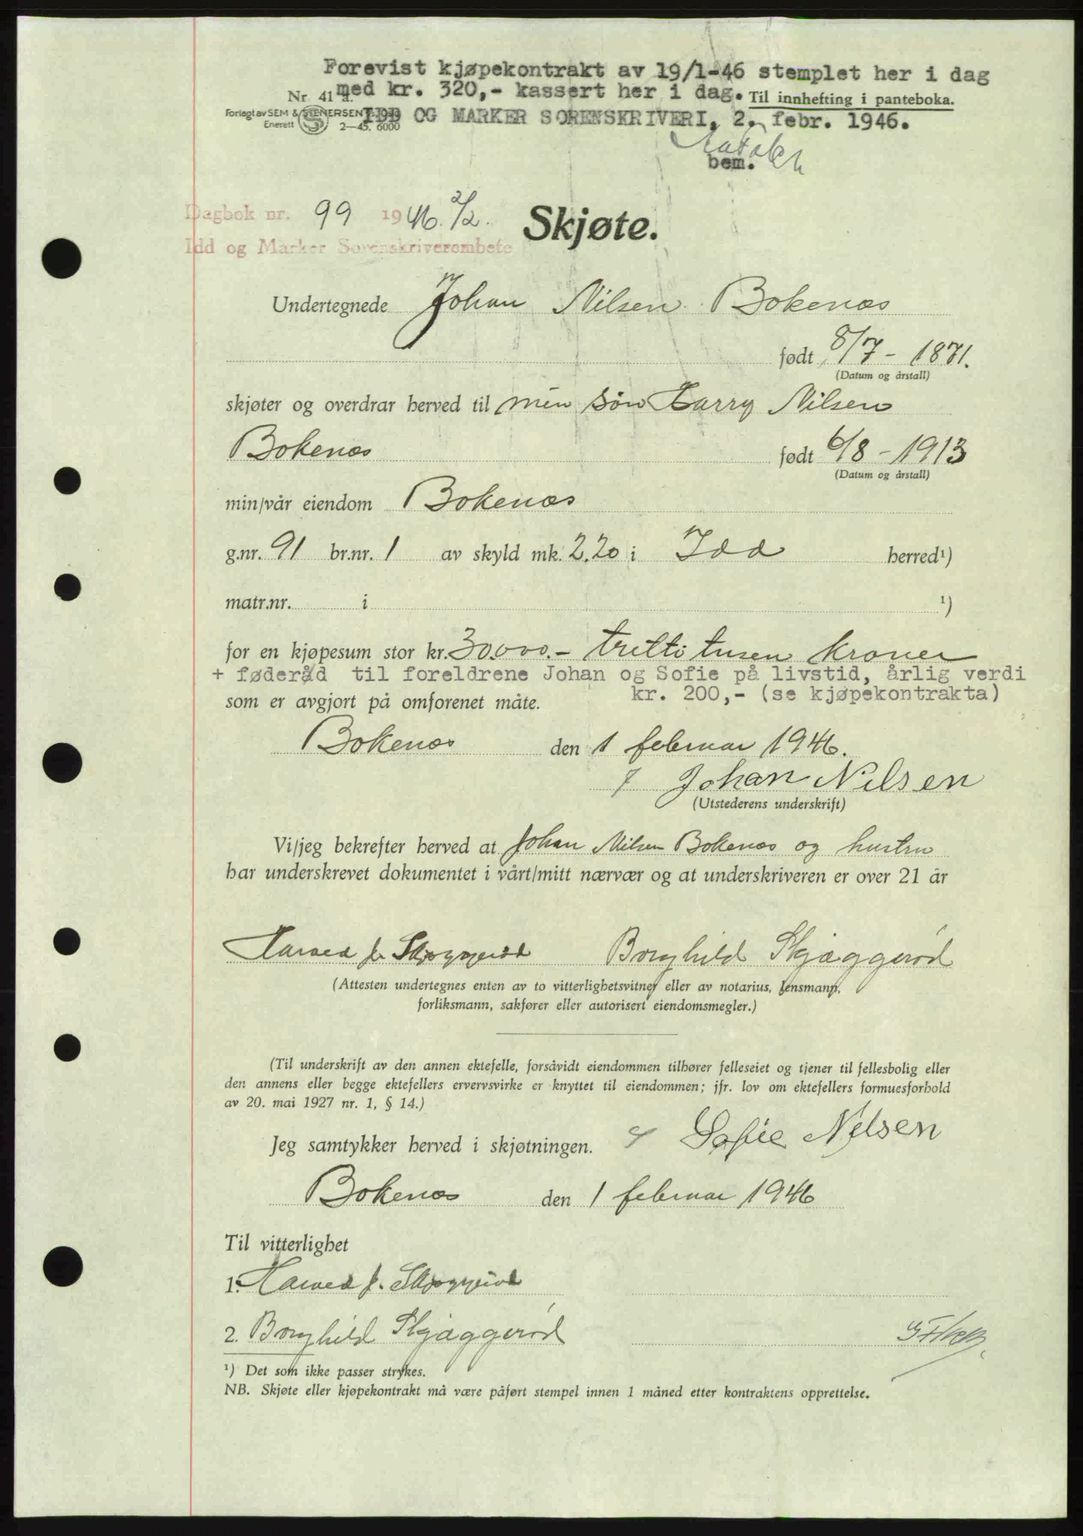 Forevist kjøpekontrakt av 19/1-46 stemplet her i dag
Nr. 41 a. med kr. 320,- kassert her i dag. Til innhefting i panteboka.
Forlagt av SEM & STENERSEN
Enerett S 2-45. 6000
IDD OG MARKER SORENSKRIVERI, 2. febr. 1946.
bem.
Dagbok nr. 99 1946 2/2.
Idd og Marker Sorenskriverembete
Skjøte.
Undertegnede Johan Nilsen Bokenæs
født 8/7 - 1871.
(Datum og årstall)
skjøter og overdrar herved til min søn Harry Nilsen
Bokenæs født 6/8 - 1913
(Datum og årstall)
min/vår eiendom Bokenæs
g.nr. 91 br.nr. 1 av skyld mk. 2.20 i Idd herred¹)
matr.nr. i ¹)
for en kjøpesum stor kr. 30.000.- tretti tusen kroner
+ føderåd til foreldrene Johan og Sofie på livstid, årlig verdi
kr. 200,- (se kjøpekontrakta)
som er avgjort på omforenet måte.
Bokenæs den 1 februar 1946.
Johan Nilsen
(Utstederens underskrift)
Vi/jeg bekrefter herved at Johan Nilsen Bokenæs og hustru
har underskrevet dokumentet i vårt/mitt nærvær og at underskriveren er over 21 år
Borghild Skjæggerød
(Attesten undertegnes enten av to vitterlighetsvitner eller av notarius, lensmann,
forliksmann, sakfører eller autorisert eiendomsmegler.)
(Til underskrift av den annen ektefelle, forsåvidt eiendommen tilhører felleseiet og tjener til fellesbolig eller
den annens eller begge ektefellers ervervsvirke er knyttet til eiendommen; jfr. lov om ektefellers formuesforhold
av 20. mai 1927 nr. 1, § 14.)
Jeg samtykker herved i skjøtningen. Sofie Nilsen
Bokenæs den 1 februar 1946
Til vitterlighet
1.
2. Borghild Skjæggerød
¹) Det som ikke passer strykes.
NB. Skjøte eller kjøpekontrakt må være påført stempel innen 1 måned etter kontraktens opprettelse.